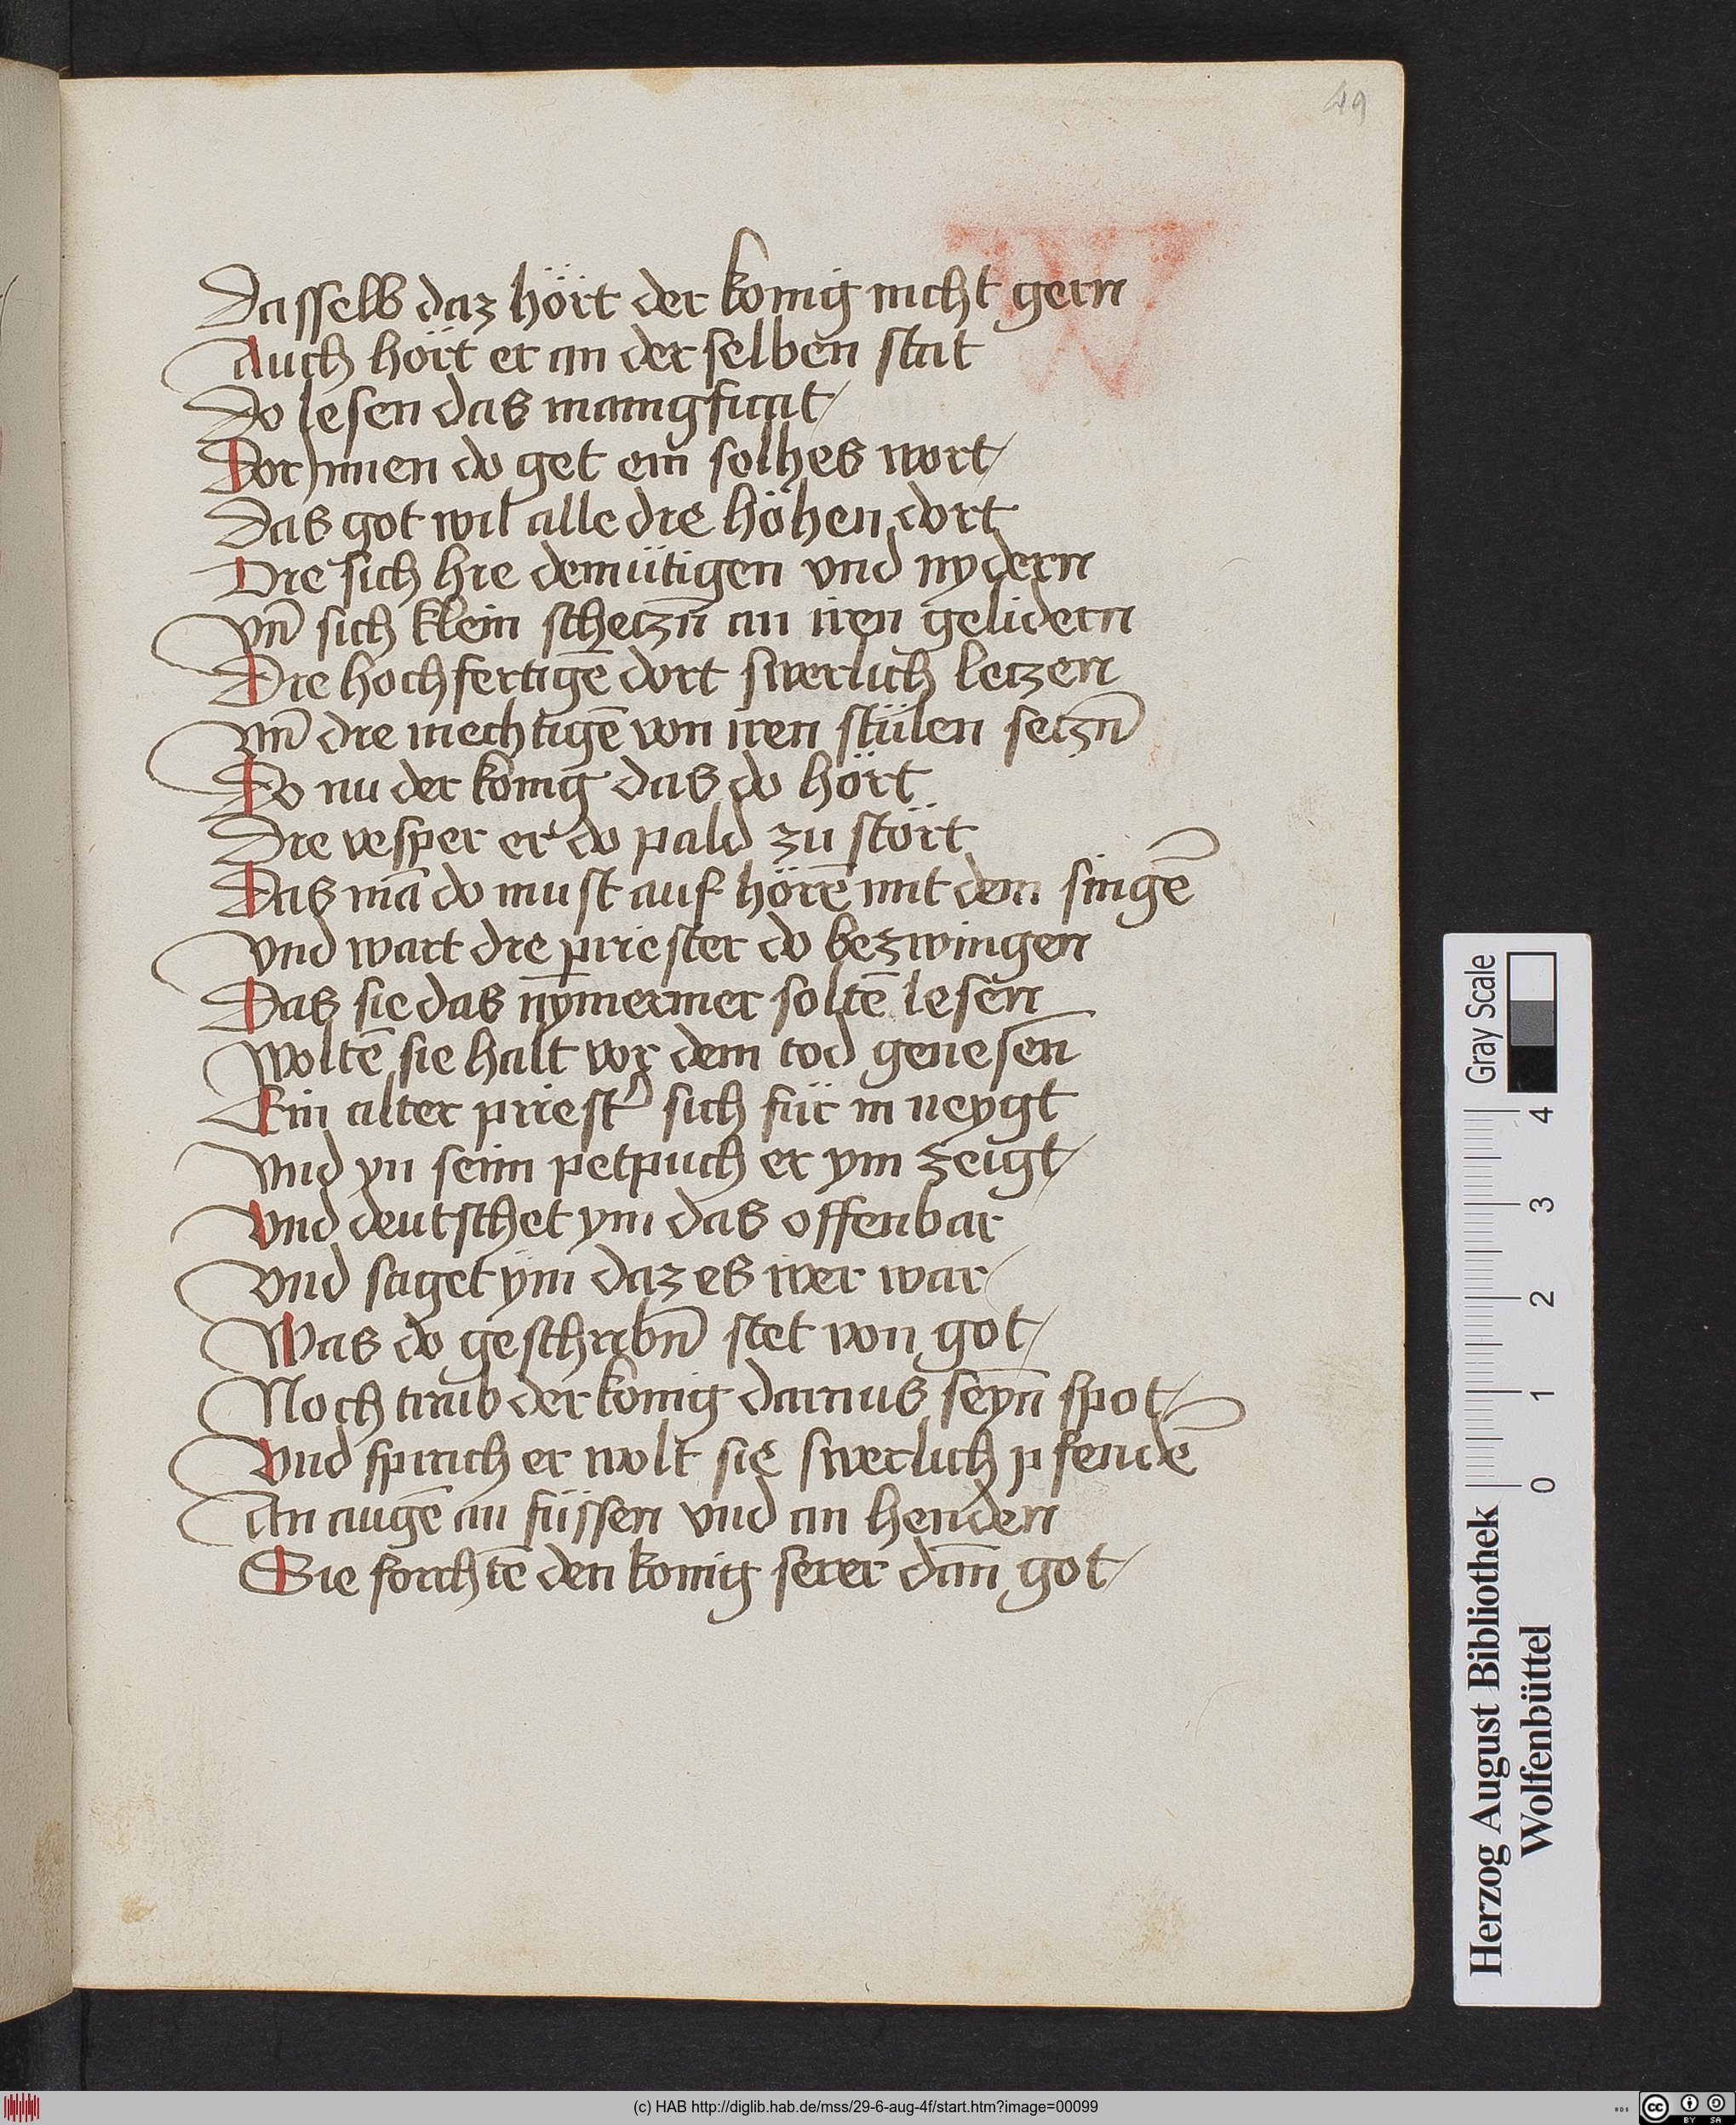 49
Dasselb daz hört der konig nicht gern
Auch hört er an der selben stat
Do lesen das mamgficat
Dor Jnnen do get ein solhes wort
Das got wil alle die höhen dort
Die sich hie demütigen vnd nydern
Vn̄ sich klein schetzn̄ an iren gelidern
Die hochfertigē dort swerlich letzen
Vn̄ die mechtigē von iren stülen setzn̄
Do nu der konig das do hört
Die vesper er do pald zu stört
Das mā do must auf hörē mit dem singē
Vnd wart die priester do bezwingen
Das sie das nȳmermer soltē lesen
Woltē sie halt vor dem tod genesen̄
Ein alter priest' sich für in neygt
Vnd yn seim petpuch er ym zeigt
Vnd deutschet ym das offenbar
Vnd saget ym daz es wer war
Was do geschribn̄ stet von got
Noch traib der konig daraus seyn̄ spot
Vnd sprach er wolt sie swerlich pfendē
An augē an füssen vnd an henden
Sie forchtē den konig serer dan̄ got
Gray Scale
0 1 2 3 4
Herzog August Bibliothek
Wolfenbüttel
(c) HAB http://diglib.hab.de/mss/29-6-aug-4f/start.htm?image=00099
BY SA